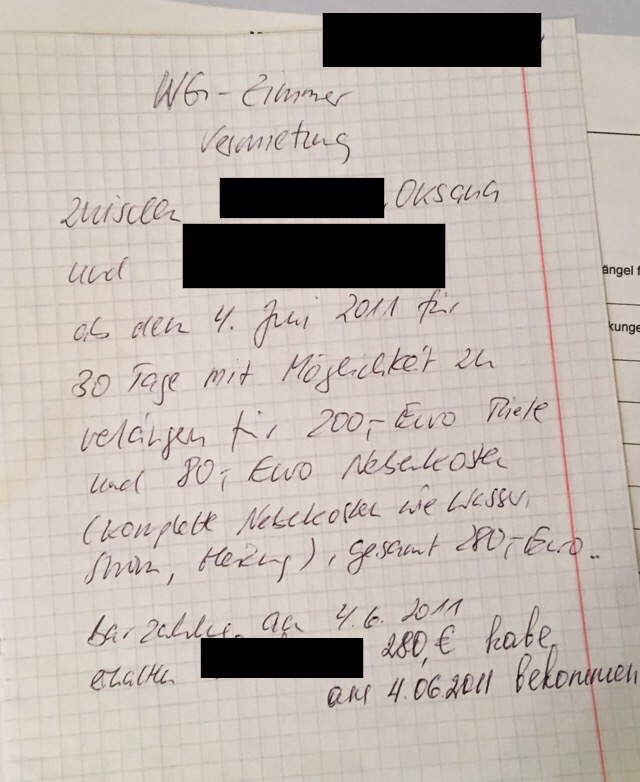 WG-Zimmer
Vermietung
zwischen , Oksana
und
ab den 4. Juni 2011 für
30 Tage mit Möglichkeit zu
verlängen für 200,- Euro Miete
und 80,- Euro Nebenkosten
(komplette Nebenkosten wie Wasser,
Strom, Heizung), gesamt 280,- Euro.
Barzahlung am 4.6.2011
erhalten 280,€ habe
am 4.06.2011 bekommen
ängel f
kunge